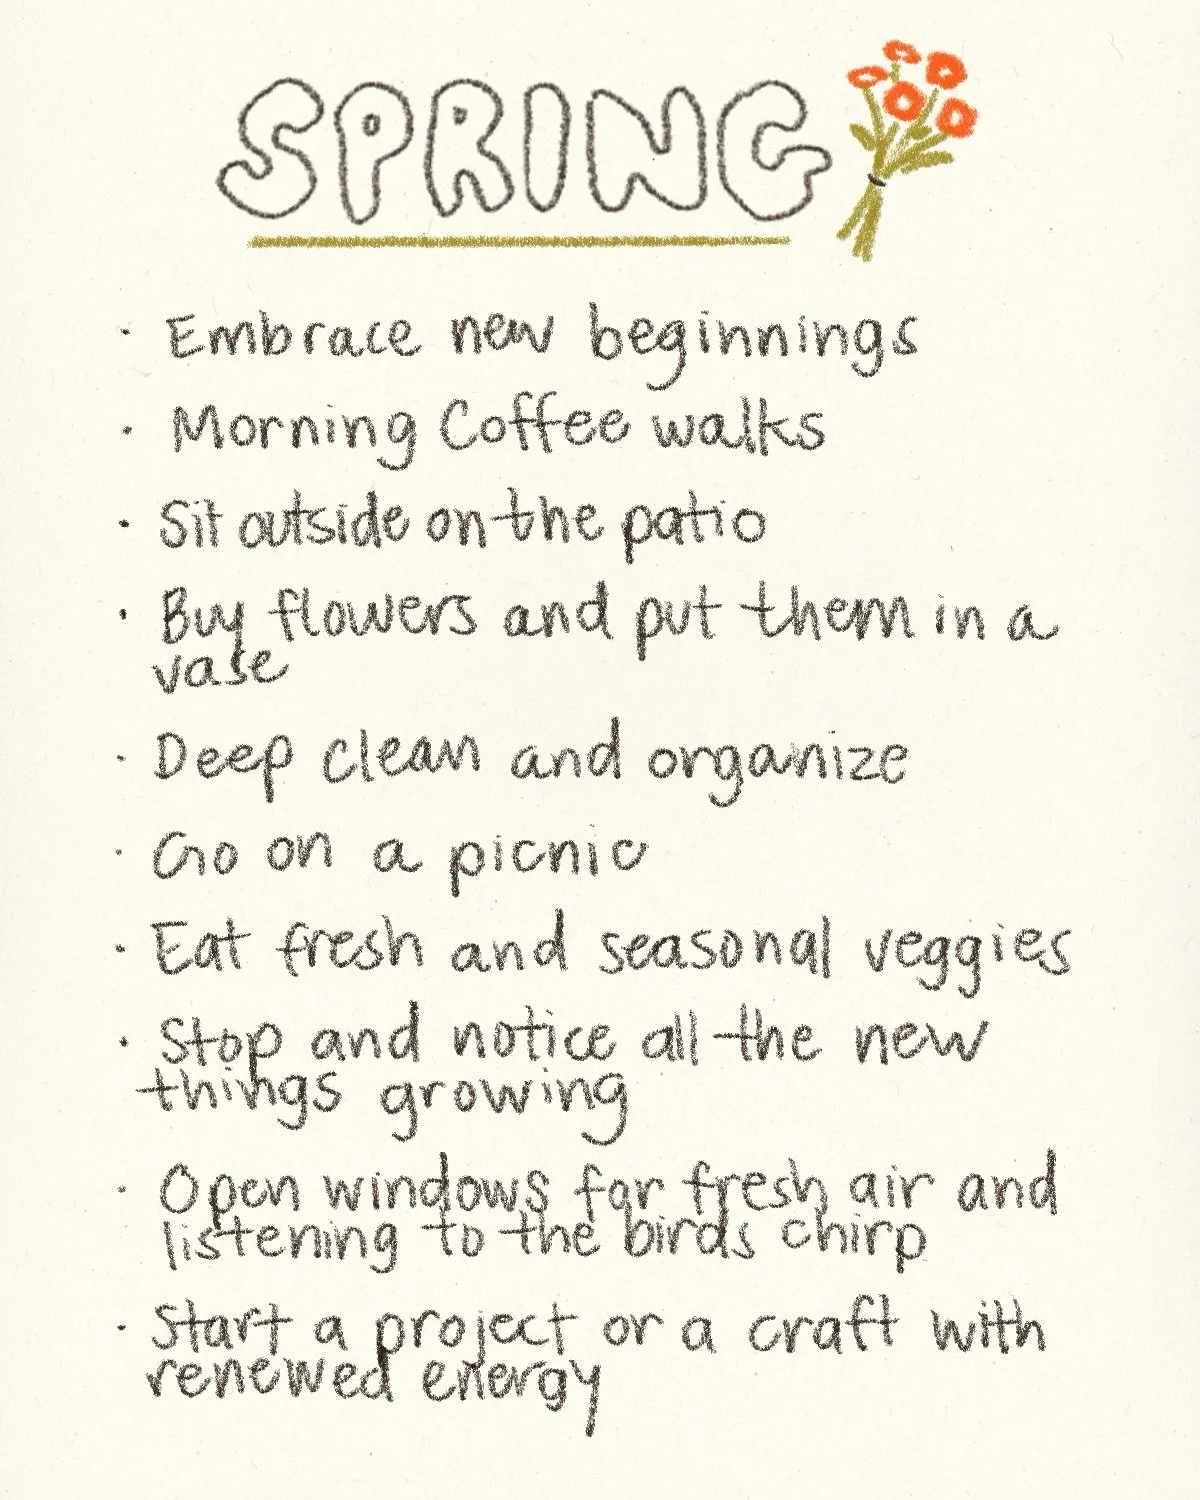 SPRING
· Embrace new beginnings
· Morning Coffee walks
· Sit outside on the patio
· Buy flowers and put them in a
vase
· Deep clean and organize
· Go on a picnic
· Eat fresh and seasonal veggies
· Stop and notice all the new
things growing
· Open windows for fresh air and
listening to the birds chirp
· Start a project or a craft with
renewed energy